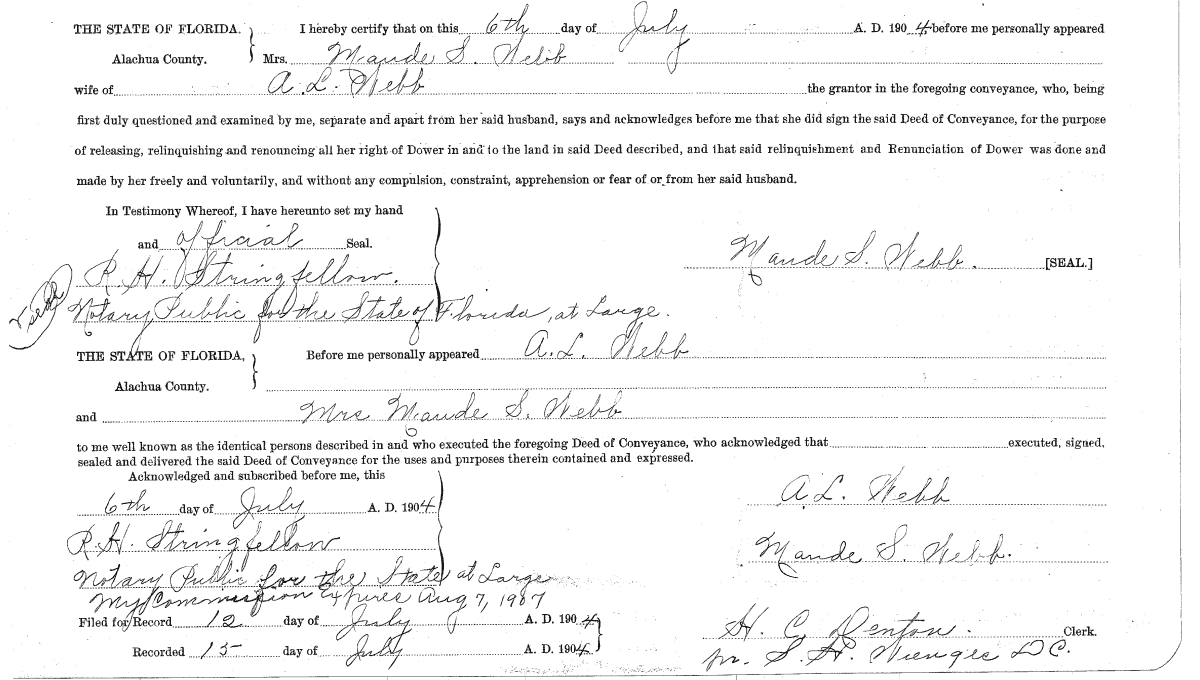 THE STATE OF FLORIDA. } I hereby certify that on this 6th day of July A. D. 1904 before me personally appeared
Alachua County. Mrs. Maude S. Webb
wife of A. L. Webb the grantor in the foregoing conveyance, who, being
first duly questioned and examined by me, separate and apart from her said husband, says and acknowledges before me that she did sign the said Deed of Conveyance, for the purpose
of releasing, relinquishing and renouncing all her right of Dower in and to the land in said Deed described, and that said relinquishment and Renunciation of Dower was done and
made by her freely and voluntarily, and without any compulsion, constraint, apprehension or fear of or from her said husband.
In Testimony Whereof, I have hereunto set my hand
and official Seal.
Maude S. Webb. [SEAL.]
R. H. Stringfellow.
Notary Public for the State of Florida, at Large.
THE STATE OF FLORIDA, } Before me personally appeared A. L. Webb
Alachua County.
and Mrs Maude S. Webb
to me well known as the identical persons described in and who executed the foregoing Deed of Conveyance, who acknowledged that executed, signed,
sealed and delivered the said Deed of Conveyance for the uses and purposes therein contained and expressed.
Acknowledged and subscribed before me, this
6th day of July A. D. 1904
A. L. Webb
R. H. Stringfellow
Maude S. Webb.
Notary Public for the State at Large
My Commission Expires Aug 7, 1907
Filed for Record 12 day of July A. D. 1904
H. C. Denton. Clerk.
Recorded 15 day of July A. D. 1904
pr. S. H. Wienges D C.